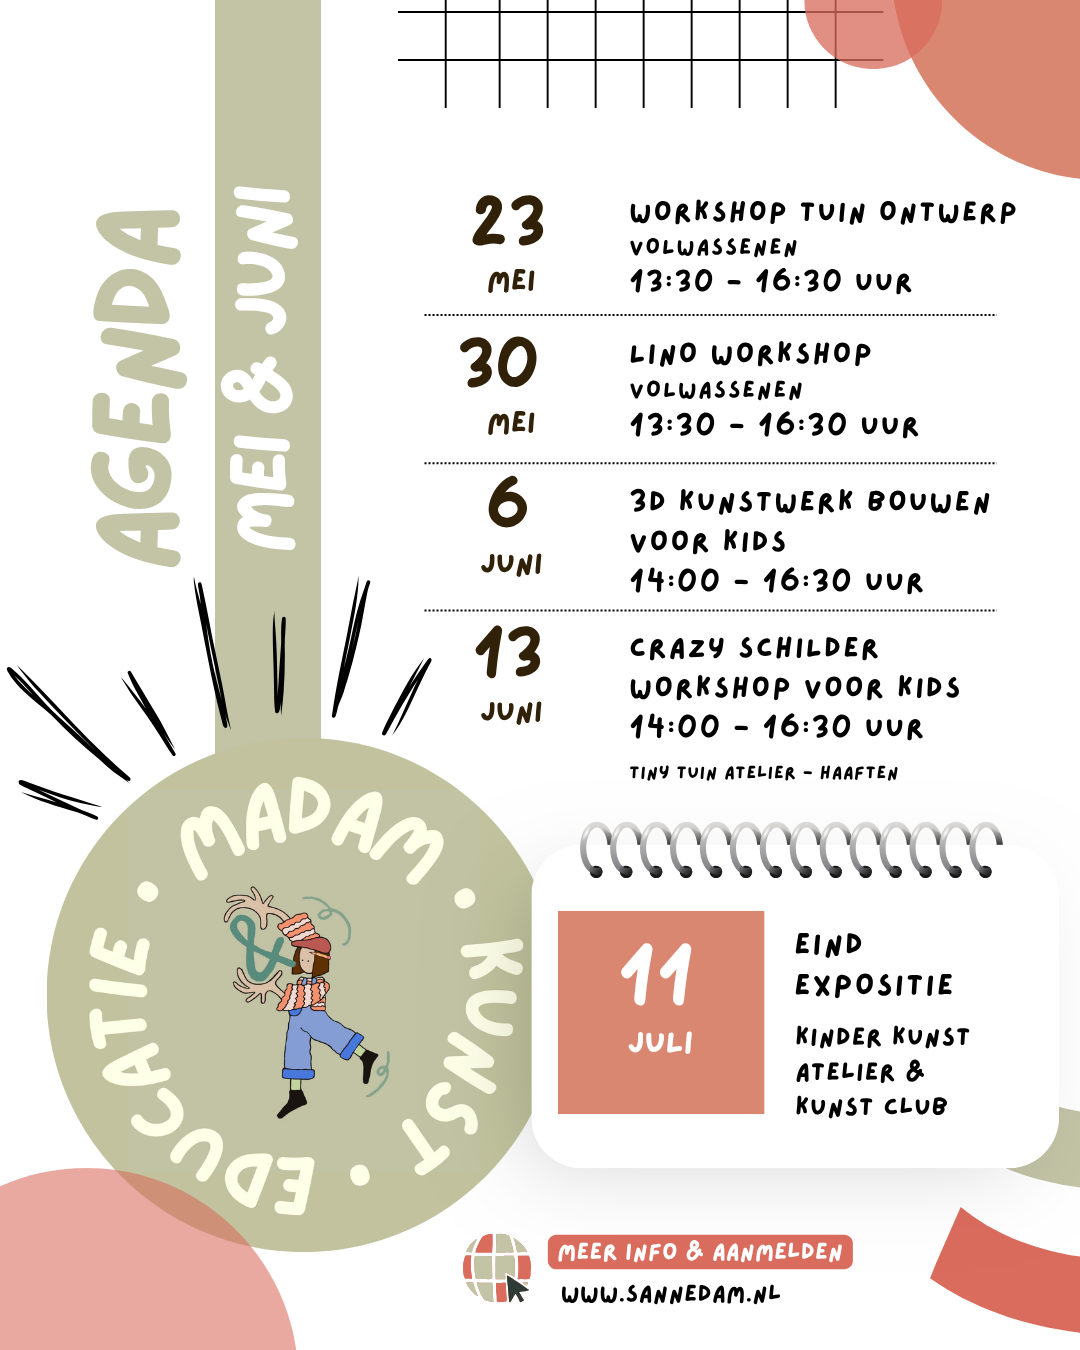 AGENDA
MEI & JUNI
23
MEI
WORKSHOP TUIN ONTWERP
VOLWASSENEN
13:30 - 16:30 UUR
30
MEI
LINO WORKSHOP
VOLWASSENEN
13:30 - 16:30 UUR
6
JUNI
3D KUNSTWERK BOUWEN
VOOR KIDS
14:00 - 16:30 UUR
13
JUNI
CRAZY SCHILDER
WORKSHOP VOOR KIDS
14:00 - 16:30 UUR
TINY TUIN ATELIER - HAAFTEN
MADAM • KUNST • EDUCATIE •
&
11
JULI
EIND
EXPOSITIE
KINDER KUNST
ATELIER &
KUNST CLUB
MEER INFO & AANMELDEN
WWW.SANNEDAM.NL